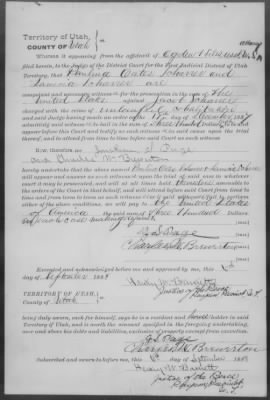 Territory of Utah,
COUNTY OF Utah } ss
Whereas it appearing from the affidavit of Ogden Hiles
filed herein, to the Judge of the District Court for the First Judicial District of Utah
Territory, that Paulina Oates Schoerer and
Lamina Schoerer are
complaint and necessary witness for the prosecution in the case of The
United States against Jacob Schoerer
charged with the crime unlawful cohabitation
and said Judge having made an order
admitted said witness to bail in the sum of Three Hundred Dollars
and appear before this Court and testify as such witness in said cause upon the
trial thereof, and to attend from time to time before said Court as such witness
Now, we, Jonathan S. Page
and Charles W. Brewerton
hereby undertake that the above named
will appear and testify as such witness at the trial of said cause, in whatever
court it may be prosecuted, and will at all times hold themselves amenable to
the orders of the Court in that behalf, and will attend before said Court from time to
time and from term to term as such witness, or if they fail to perform
either of the above conditions, we will pay to the United States
of America the sum of Three Hundred Dollars
in each case
J. S. Page
Charles W. Brewerton
Executed and acknowledged before me and approved by me, this 1st
day of September 1888
TERRITORY OF UTAH, }
County of Utah } ss
being duly sworn, each for himself, says he is a resident and householder in said
Territory of Utah, and is worth the amount specified in the foregoing undertaking,
over and above his debts and liabilities, exclusive of property exempt from execution.
J. S. Page
Charles W. Brewerton
Subscribed and sworn to before me, this 1st day of September 1888
Justice of the Peace